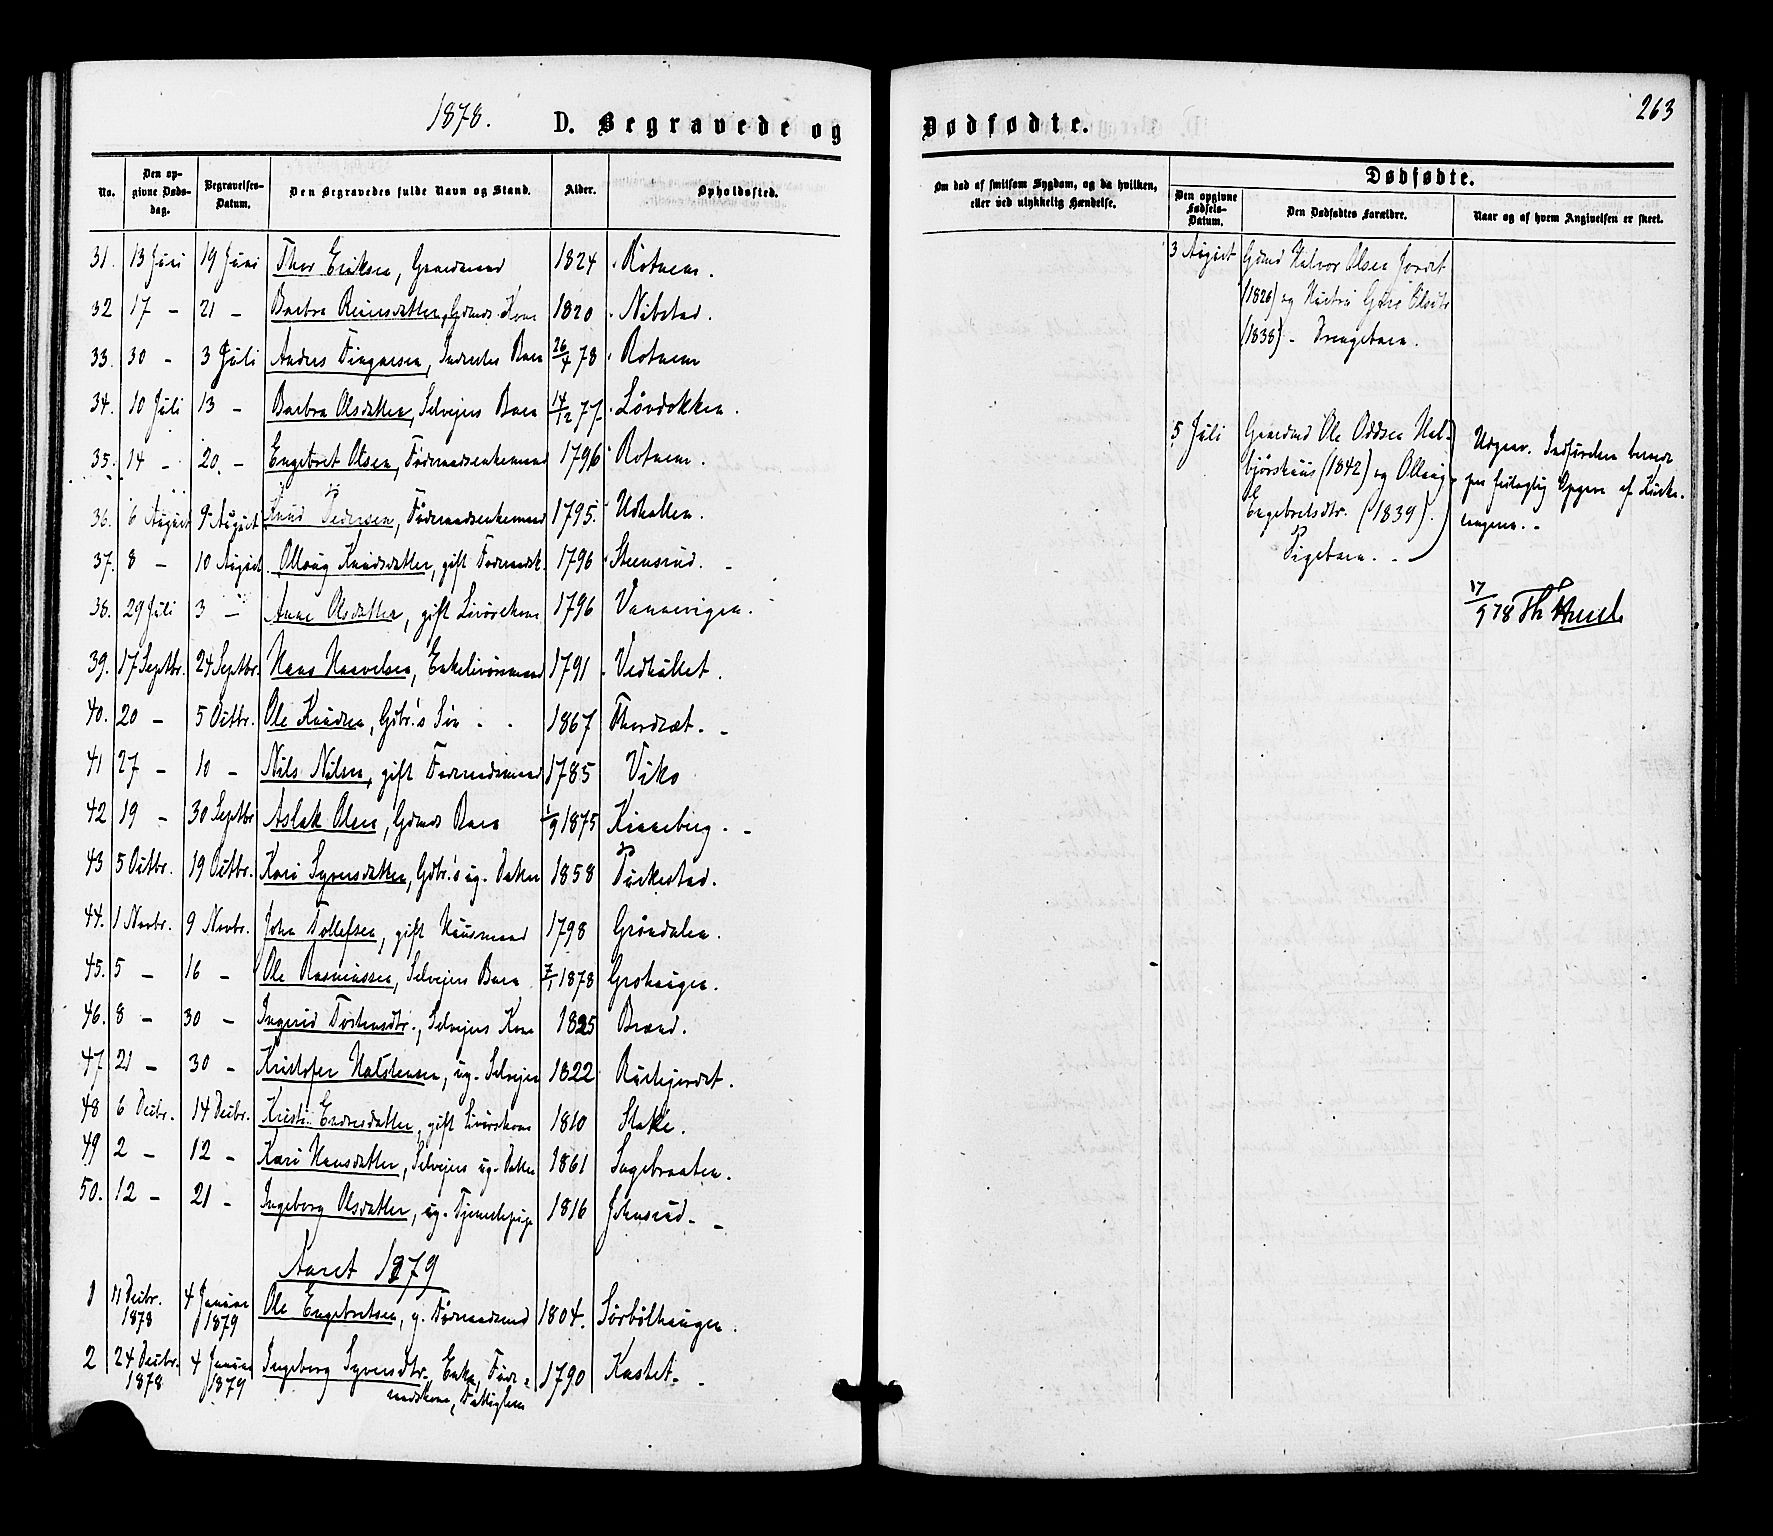 1878. D. Begravede og Dødfødte. 263
No. Den opgivne Dødsdag. Begravelses-Datum. Den Begravedes fulde Navn og Stand. Alder. Opholdssted.
Om død af smitsom Sygdom, og da hvilken, eller ved ulykkelig Hændelse.
Dødfødte.
Den opgivne Fødsels-Datum. Den Dødfødtes Forældre. Naar og af hvem Angivelsen er skeet.
31. 13 Juni 19 Juni Thor Eriksen, Gaardmand 1824 Rotnem.
32 17 - 21 - Barbro Reiersdatter, Gdmds Kone 1820 Nibstad.
33. 30 - 3 Juli Andres Fingarsen, Inderstes Barn 26/4 78 Rotnem
34. 10 Juli 13 - Barbro Olsdatter, Selvejers Barn 14/12 77. Løvdokken.
35. 14 - 20. - Engebret Olsen, Føderaadsenkemand 1796 Rotnem.
36. 6 August 9 August Knud Pedersen, Føderaadsenkemand 1795. Udhallen.
37. 8 - 10 August. Ollaug Knudsdatter, gift Føderaadsk. 1796 Steensrud. -
38. 29 Juli 3 - Anne Olsdatter, gift Livørekone 1796 Vannevigen.
39. 17 Septbr. 24 Septbr. Hans Haavelsen, Enkelivøremand 1791 Vedhullet.
40. 20 - 5 Octbr. Ole Knudsen, Gdbr.'s Søn - - 1867 Thordsæt. -
41 27 - 10 - Nils Nilsen, gift Føderaadsmand 1785 Viko
42 19 - 30 Septbr Aslak Olsen, Gdmds Barn 1/9 1875 Kinneberg. -
43 5 Octbr. 19 Octbr. Kari Syversdatter, Gdbr.'s ug. Datter 1858 Turkestad.
44. 1 Novbr. 9 Novbr. John Tollefsen, gift Huusmand 1798 Grøndalen.
45. 5 - 16 - Ole Rasmussen, Selvejers Barn 7/1 1878 Grohaugen.
46. 8 - 30 - Ingerid Tostensdtr., Selvejers Kone 1825 Brænd.
47. 21 - 30 - Kristofer Halstensen, ug. Selvejer 1822 Rustegjerdet.
48 6 Decbr. 14 Decbr. Kristi Endresdatter, gift Livørekone 1810 Stake.
49 2 - 12 - Kari Hansdatter, Selvejers ug. Datter 1861 Sagebraaten.
50. 12 - 21 - Ingeborg Olsdatter, ug. Tjenestepige 1816 Johnsrud. -
Aaret 1879
1 11 Decbr. 1878 4 Januar 1879 Ole Engebretsen, g. Føderaadsmd 1804. Sørbølhaugen.
2 24 Decbr. 1878 4 Januar 1879 Ingeborg Syversdtr., Enke, Føderaadskone, Fattiglem 1790 Kastet. -
3 August Gdmd Halvor Olsen Jordet
(1826) og Hustru Guro Olsdtr
(1838). - Drengebarn.
5 Juli Gaardmd Ole Oddsen Hal-
bjørshuus (1842) og Ollaug
Engebretsdtr. (1839).
Pigebarn. -
Udgaar. Indførelsen beroede
paa feilagtig Opgave af Kirke-
sangeren. -
17/9 78 Th